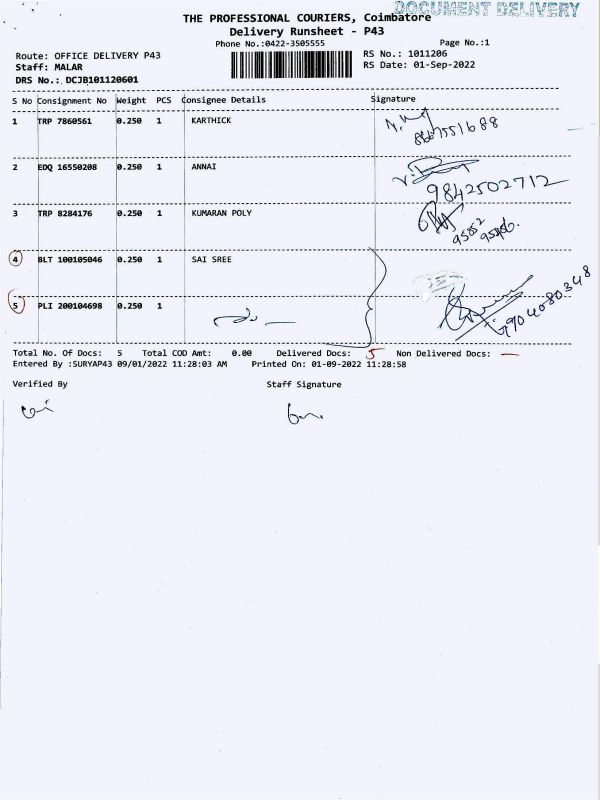 DOCUMENT DELIVERY
THE PROFESSIONAL COURIERS, Coimbatore
Delivery Runsheet - P43
Phone No.:0422-3505555 Page No.:1
Route: OFFICE DELIVERY P43 RS No.: 1011206
Staff: MALAR RS Date: 01-Sep-2022
DRS No.: DCJB101120601
S No Consignment No Weight PCS Consignee Details Signature
1 TRP 7860561 0.250 1 KARTHICK
2 EDQ 16550208 0.250 1 ANNAI 9842502712
3 TRP 8284176 0.250 1 KUMARAN POLY
4 BLT 100105046 0.250 1 SAI SREE
5 PLI 200104698 0.250 1 9904080348
Total No. Of Docs: 5 Total COD Amt: 0.00 Delivered Docs: 5 Non Delivered Docs: —
Entered By :SURYAP43 09/01/2022 11:28:03 AM Printed On: 01-09-2022 11:28:58
Verified By Staff Signature